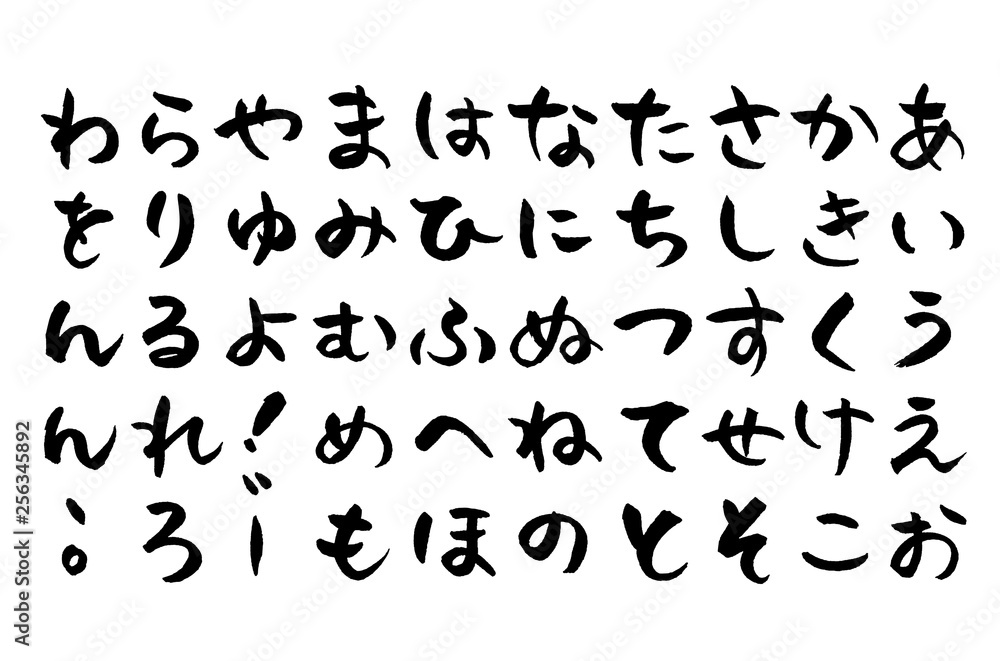 あいうえお
かきくけこ
さしすせそ
たちつてと
なにぬねの
はひふへほ
まみむめも
やゆよ！゛ー
らりるれろ
わをんん、。
Adobe Stock | #256345892